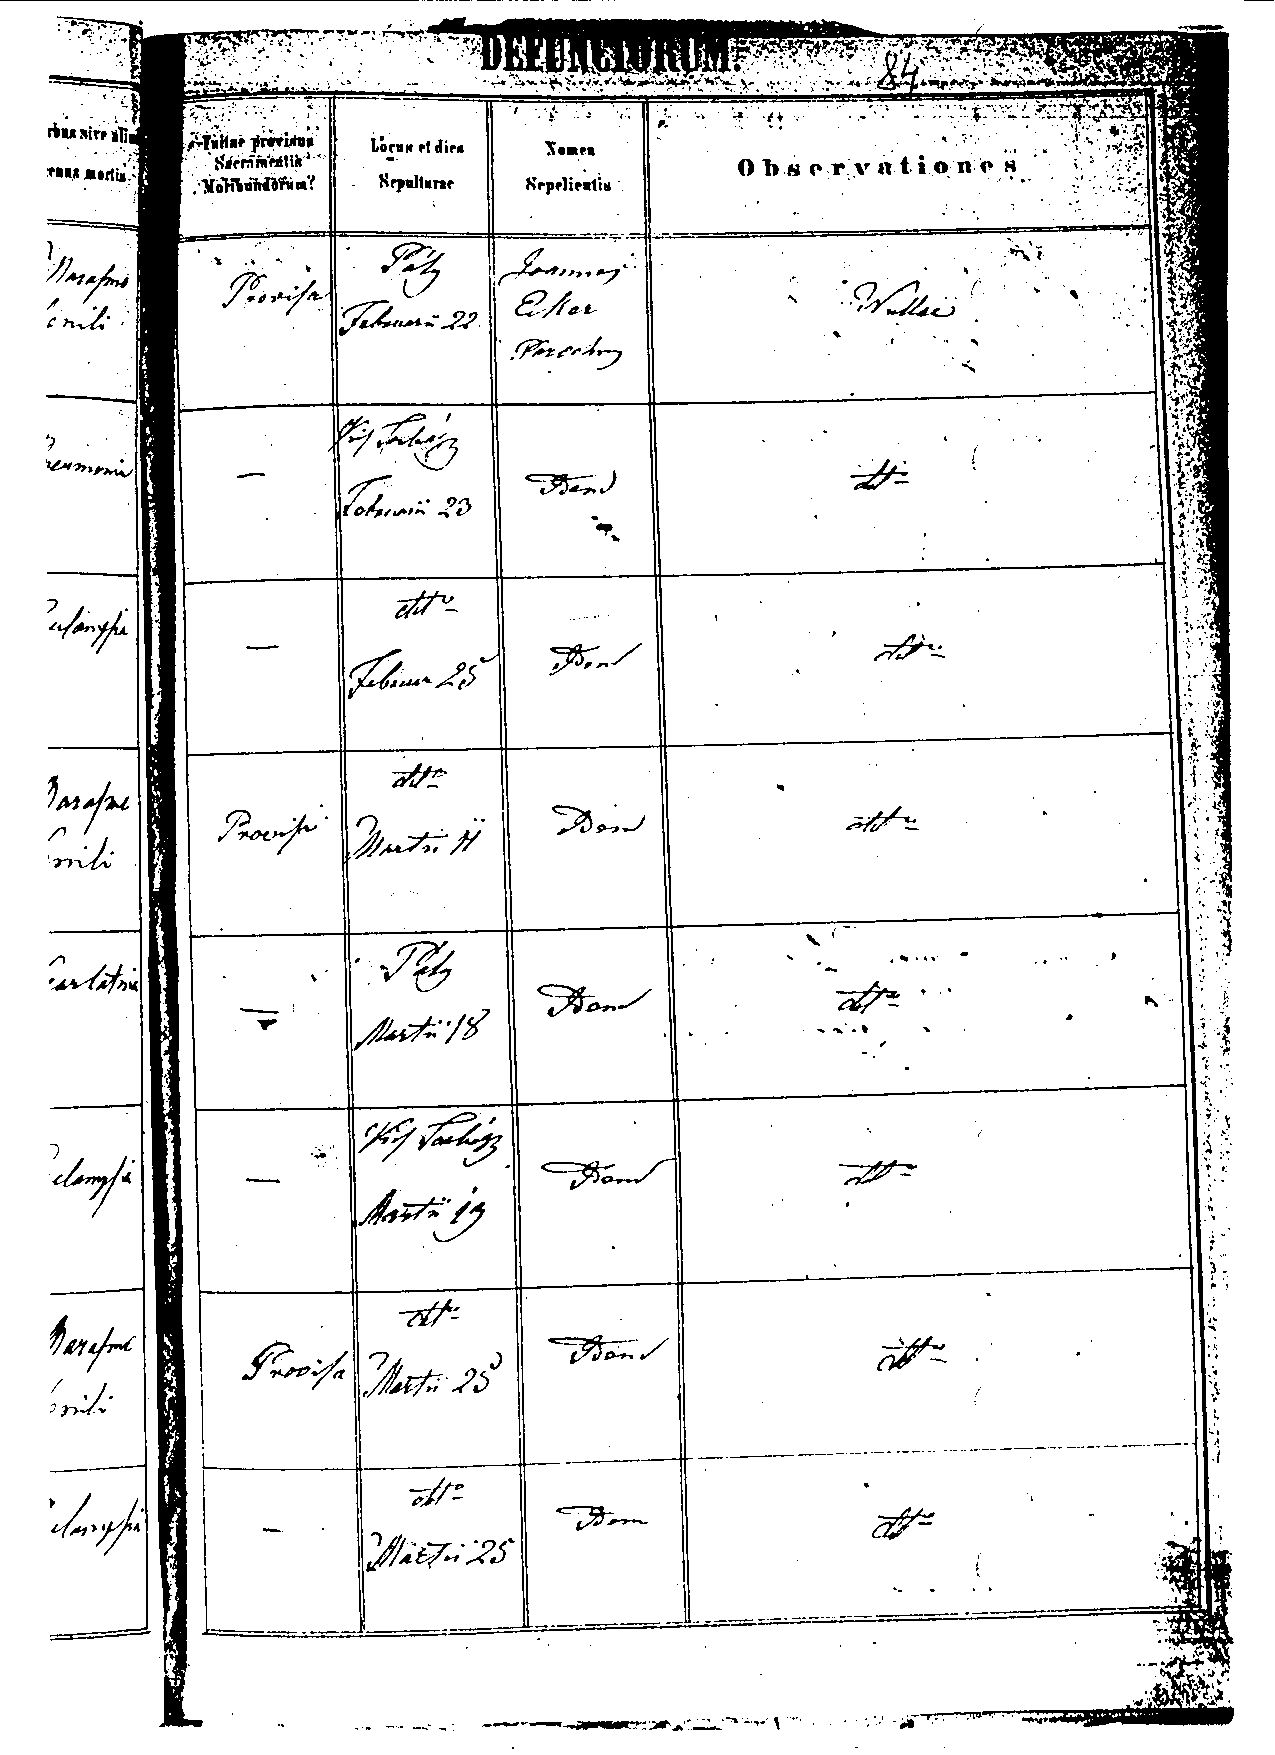 DEFUNCTORUM.
84
Fuitne provisus
Sacramentis
Moribundorum?
Locus et dies
Sepulturae
Nomen
Sepelientis
Observationes
Marasme
senili
Provisa
Páty
Februarii 22
Joannes
Eker
Parochus
Nullae
Pneumonia
—
Februarii 23
Idem
dtto
Eclampsia
—
dtto
Februar 25
Idem
dtto
Marasme
senili
Provisa
dtto
Martii 11
Idem
dtto
Scarlatina
—
Páty
Martii 18
Idem
dtto
Eclampsia
—
Martii 19
Idem
dtto
Marasme
senili
Provisa
dtto
Martii 25
Idem
dtto
Eclampsia
—
dtto
Martii 25
Idem
dtto